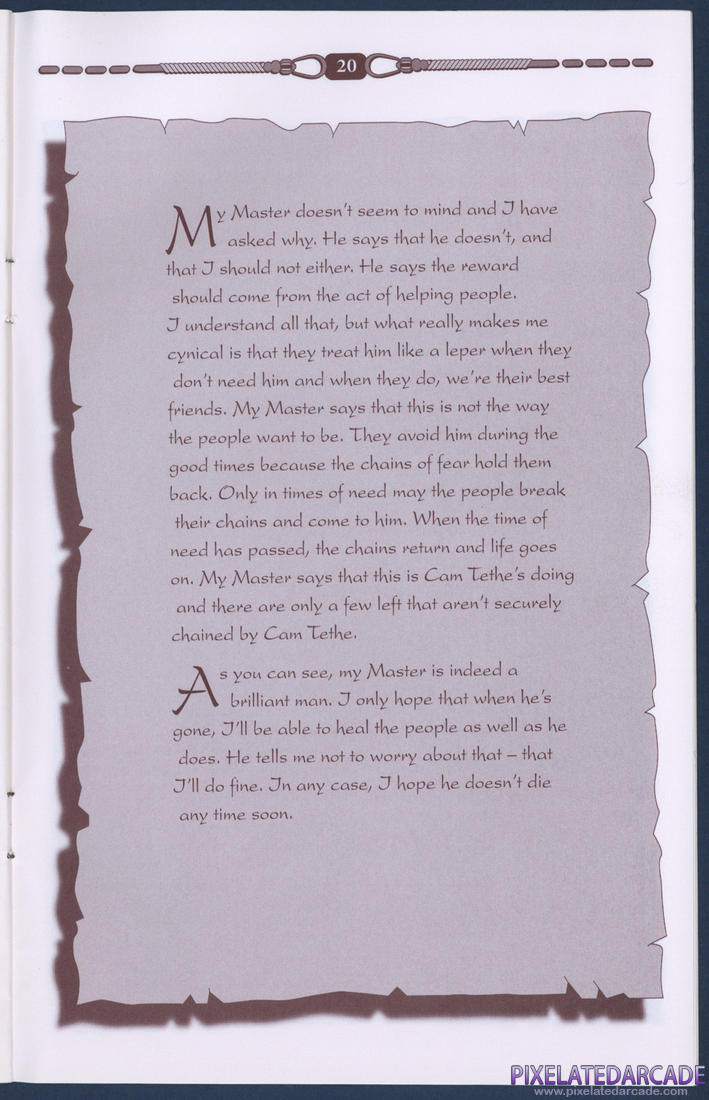 20
My Master doesn't seem to mind and I have
asked why. He says that he doesn't, and
that I should not either. He says the reward
should come from the act of helping people.
I understand all that, but what really makes me
cynical is that they treat him like a leper when they
don't need him and when they do, we're their best
friends. My Master says that this is not the way
the people want to be. They avoid him during the
good times because the chains of fear hold them
back. Only in times of need may the people break
their chains and come to him. When the time of
need has passed, the chains return and life goes
on. My Master says that this is Cam Tethe's doing
and there are only a few left that aren't securely
chained by Cam Tethe.
As you can see, my Master is indeed a
brilliant man. I only hope that when he's
gone, I'll be able to heal the people as well as he
does. He tells me not to worry about that – that
I'll do fine. In any case, I hope he doesn't die
any time soon.
PIXELATEDARCADE
www.pixelatedarcade.com